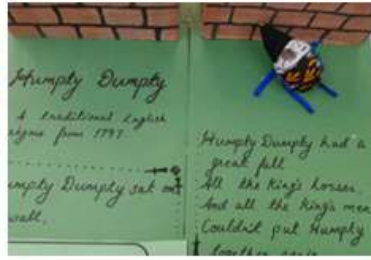 Humpty Dumpty
A traditional English
rhyme from 1797
umpty Dumpty sat on
wall,
Humpty Dumpty had a
great fall
All the King's horses,
And all the King's men
Couldn't put Humpty
together again